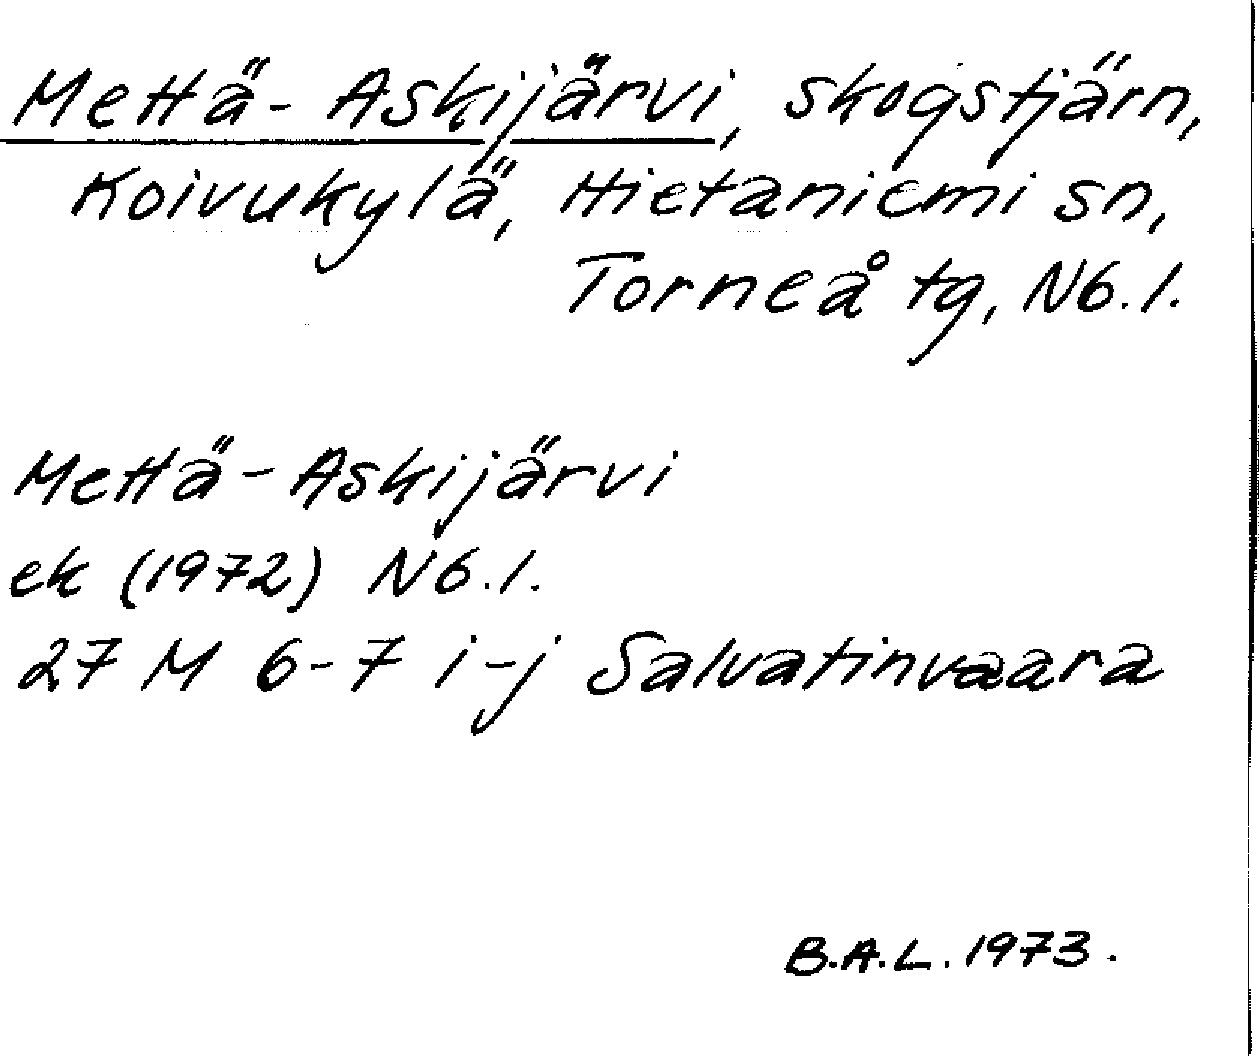 Mettä-Askijärvi, skogstjärn,
Koivukylä, Hietaniemi sn,
Torneå tg, N6.1.
Mettä-Askijärvi
ek (1972) N6.1.
27 M 6-7 i-j Salvatinvaara
B.A.L. 1973.